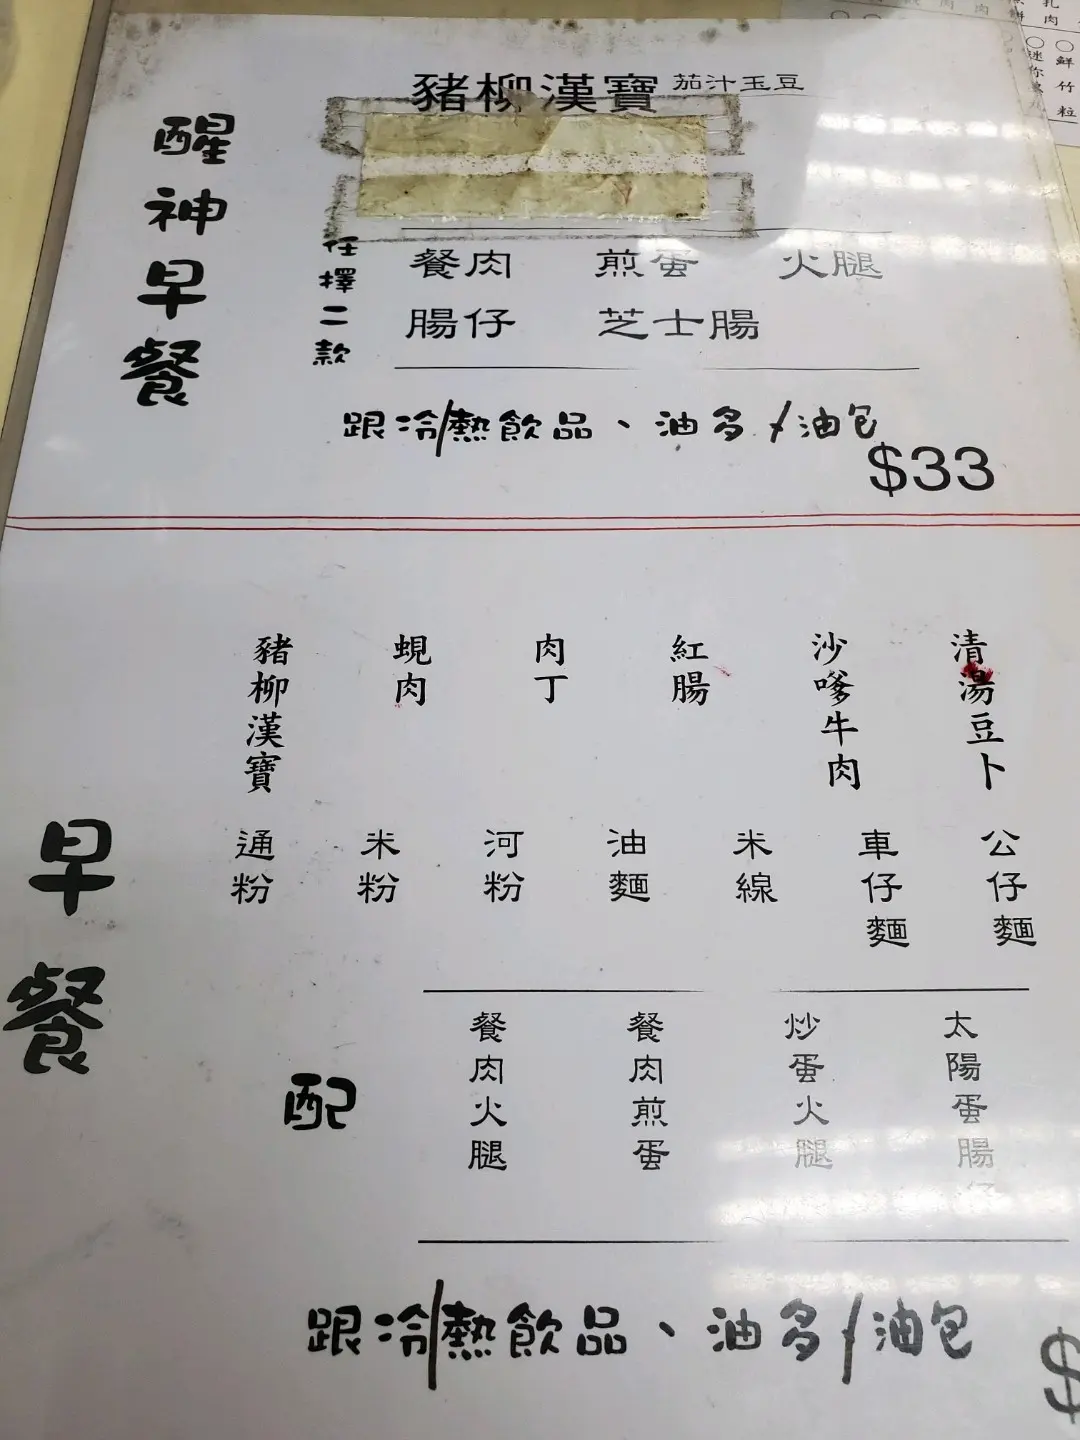 醒神早餐
豬柳漢寶 茄汁玉豆
任擇二款
餐肉 煎蛋 火腿
腸仔 芝士腸
跟冷/熱飲品、油多/油包
$33
早餐
豬柳漢寶
蜆肉
肉丁
紅腸
沙嗲牛肉
清湯豆卜
通粉
米粉
河粉
油麵
米線
車仔麵
公仔麵
配
餐肉火腿
餐肉煎蛋
炒蛋火腿
太陽蛋腸仔
跟冷/熱飲品、油多/油包
$
鮮竹粒